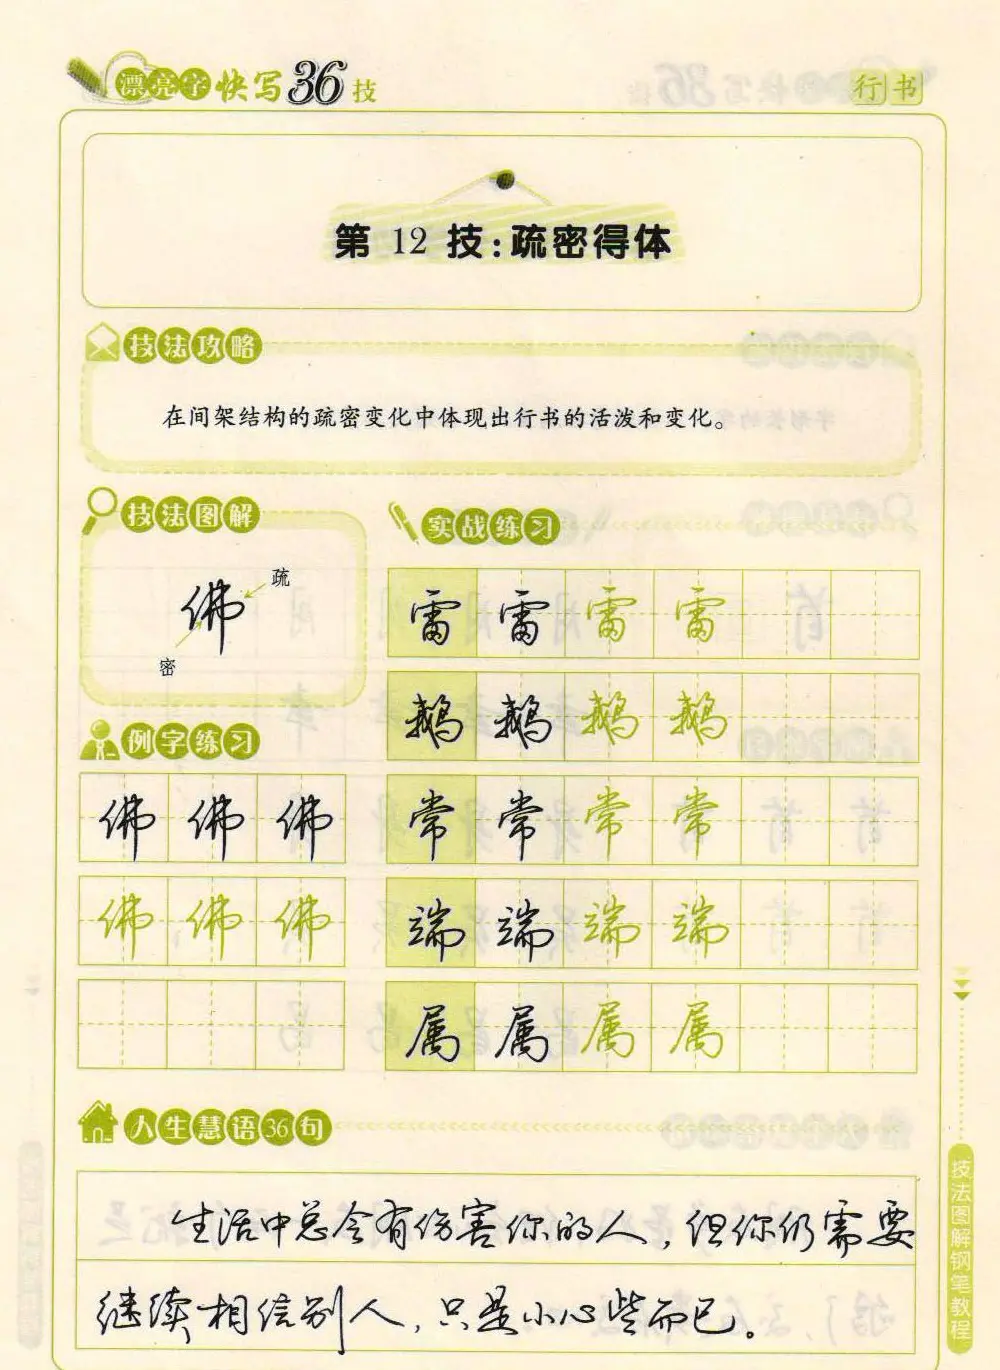 漂亮字快写36技
行书
第12技:疏密得体
技法攻略
在间架结构的疏密变化中体现出行书的活泼和变化。
技法图解
疏
佛
密
实战练习
雷 雷 雷 雷
鹅 鹅 鹅 鹅
常 常 常 常
端 端 端 端
属 属 属 属
例字练习
佛 佛 佛
佛 佛 佛
人生慧语36句
生活中总会有伤害你的人，但你仍需要
继续相信别人，只是小心些而已。
技法图解钢笔教程